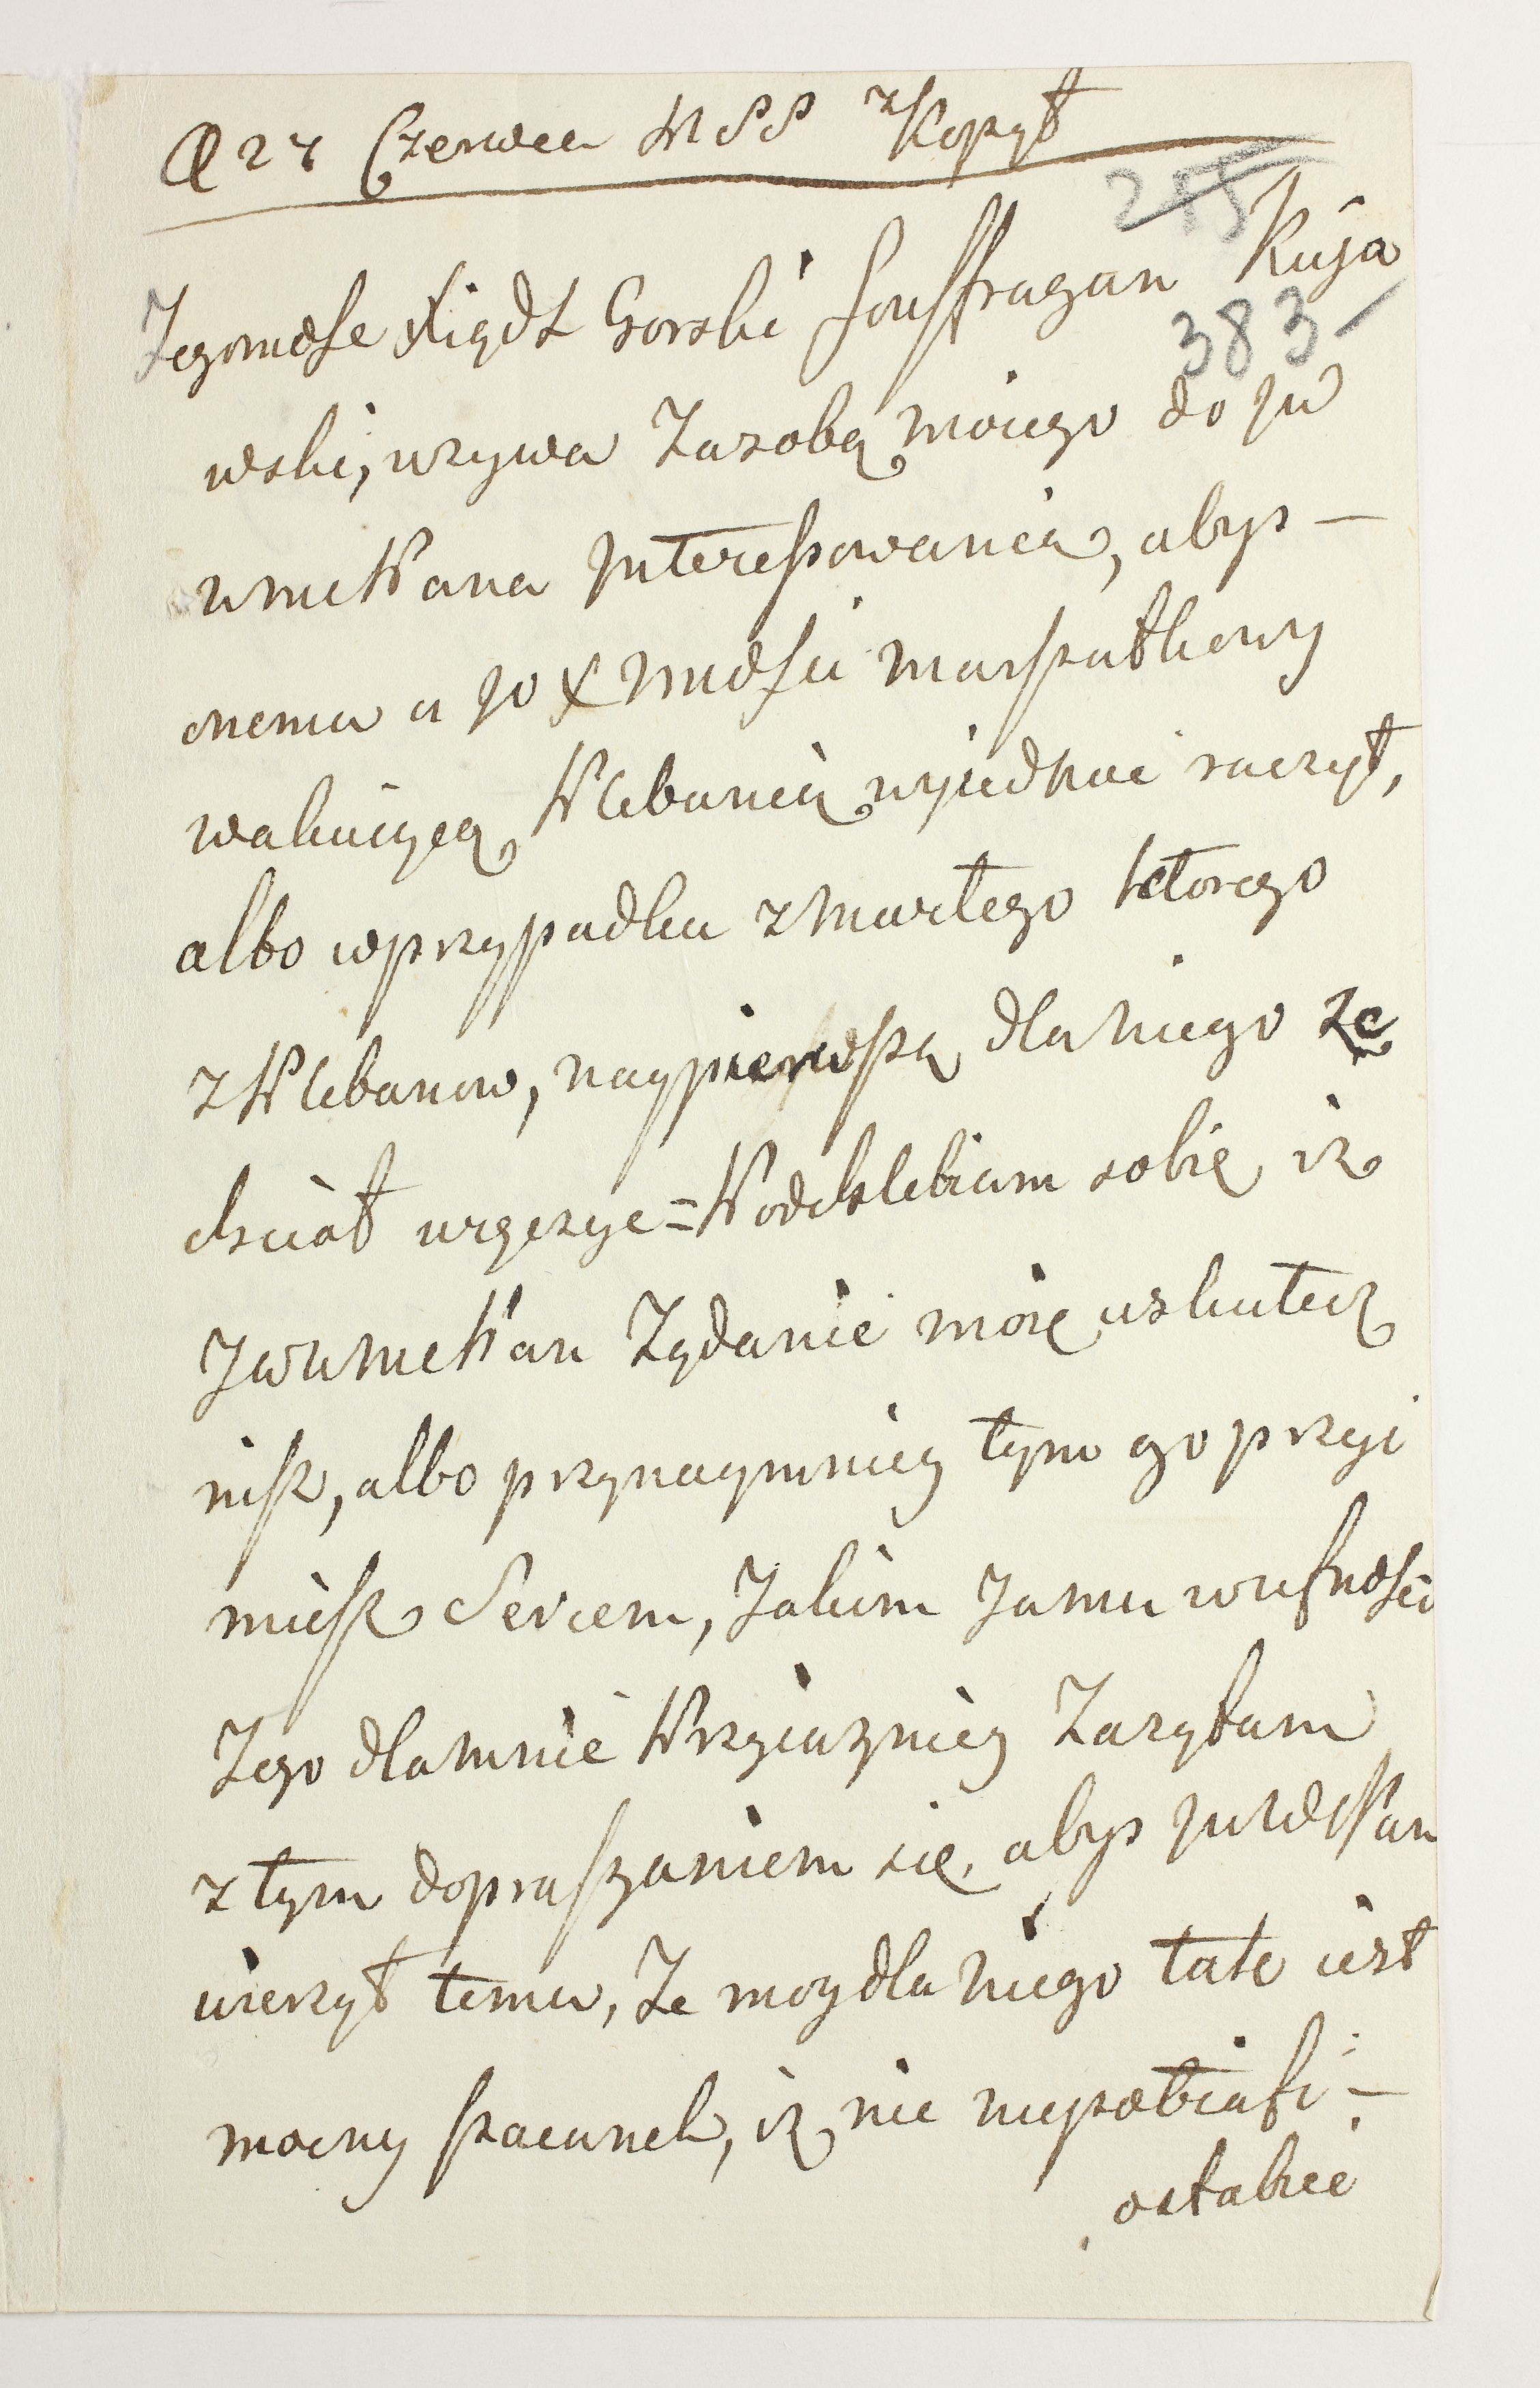 27 Czerwca z Kopył
255
Jegomość Xiądz Gorski Souffragan Kuja
383-
wski, wzywa Zasobą moiego do JW
WmcPana Interessowania, abyś –
onemu a JO X Jmości Marszałkowy
wakuiącą Plebanią wyiednać raczył,
albo w przypadku zmarłego ktorego
z Plebanow, naypierwszą dla niego ze
chciał uręczyć = Pochlebiam sobie iż
JWWmcPan Żądanie moie uskutecz
nisz, albo przynaymniey tym go przyi
miesz Sercem, Jakim Ja mu w ufności
Jego dla mnie Przyiazniey Zaręczam
z tym dopraszaniem się, abyś
wierzył temu, Że moy dla niego tak iest
mocny szacunek, iż nic niepotrafi –
osłabić